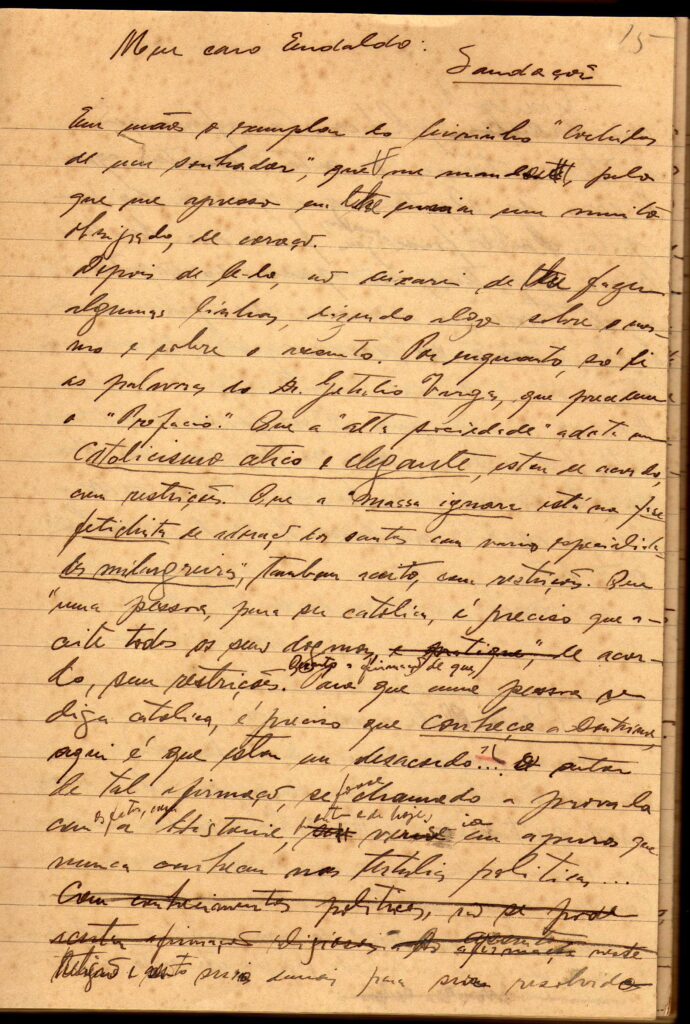 15
Meu caro Eudaldo:
Saudações
Em mãos o exemplar do livrinho "Cochilos
de um sonhador", que me mandou, pelo
que me apresso em lhe enviar um muito
obrigado, de coração.
Depois de lê-lo, não deixarei de lhe fazer
algumas linhas, dizendo algo sobre o mes-
mo e sobre o assunto. Por enquanto, só li
as palavras do Dr. Getulio Vargas, que precedem
o "Prefacio". Que a "alta sociedade" adota um
catolicismo atico e elegante, estou de acordo,
com restrições. Que a "massa ignara está na fase
fetichista de adoração dos santos com varias especialida-
des milagreiras", tambem aceito, com restrições. Que
"uma pessoa, para ser catolica, é preciso que a-
ceite todos os seus dogmas, e pratique", de acor-
do, sem restrições. Quanto a afirmação de que,
Para que uma pessoa se
diga catolica, é preciso que conheça a doutrina,
aqui é que estou em desacordo... O autor
de tal afirmação, se fosse chamado a prova-la
com a Historia, em apuros que
nunca conheceu nas tertulias politicas...
Com conhecimentos politicos, não se pode
afirmações
Religião é para serem resolvidos